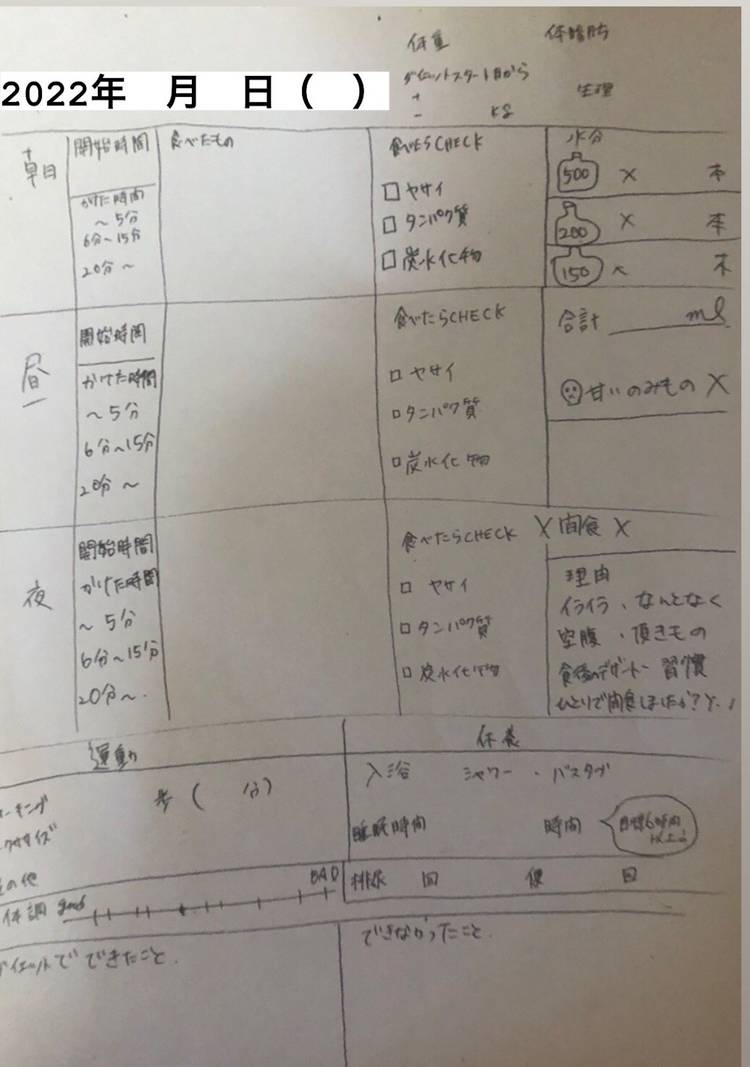 体重 体脂肪
ダイエットスタート日から
+
- kg 生理
2022年 月 日( )
朝 開始時間 食べたもの 食べたらCHECK 水分
かけた時間
~5分
6分~15分
20分~
□ ヤサイ
□ タンパク質
□ 炭水化物
500 × 本
200 × 本
150 × 本
昼 開始時間 食べたらCHECK 合計 ml
かけた時間
~5分
6分~15分
20分~
□ ヤサイ
□ タンパク質
□ 炭水化物
甘いのみもの ×
夜 開始時間 食べたらCHECK × 間食 ×
かけた時間
~5分
6分~15分
20分~
□ ヤサイ
□ タンパク質
□ 炭水化物
理由
イライラ・なんとなく
空腹・頂きもの
食後のデザート 習慣
ひとりで間食しましたか?Y.
運動 休養
ーキング 歩( 分)
クササイズ
その他
入浴 シャワー・バスタブ
睡眠時間 時間 目標6時間
以上
体調 good BAD 排尿 回 便 回
ダイエットでできたこと. できなかったこと.